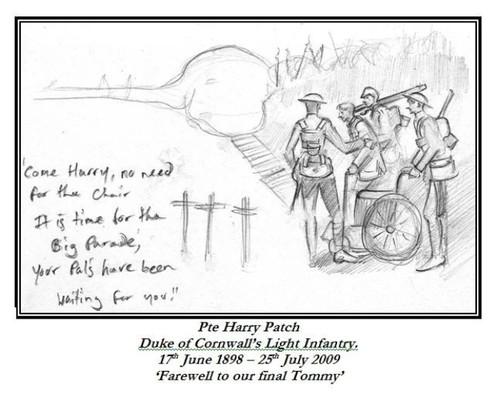 'Come Harry, no need
for the chair
It is time for the
Big Parade,'
your Pals have been
waiting for you!'
Pte Harry Patch
Duke of Cornwall's Light Infantry.
17th June 1898 – 25th July 2009
'Farewell to our final Tommy'